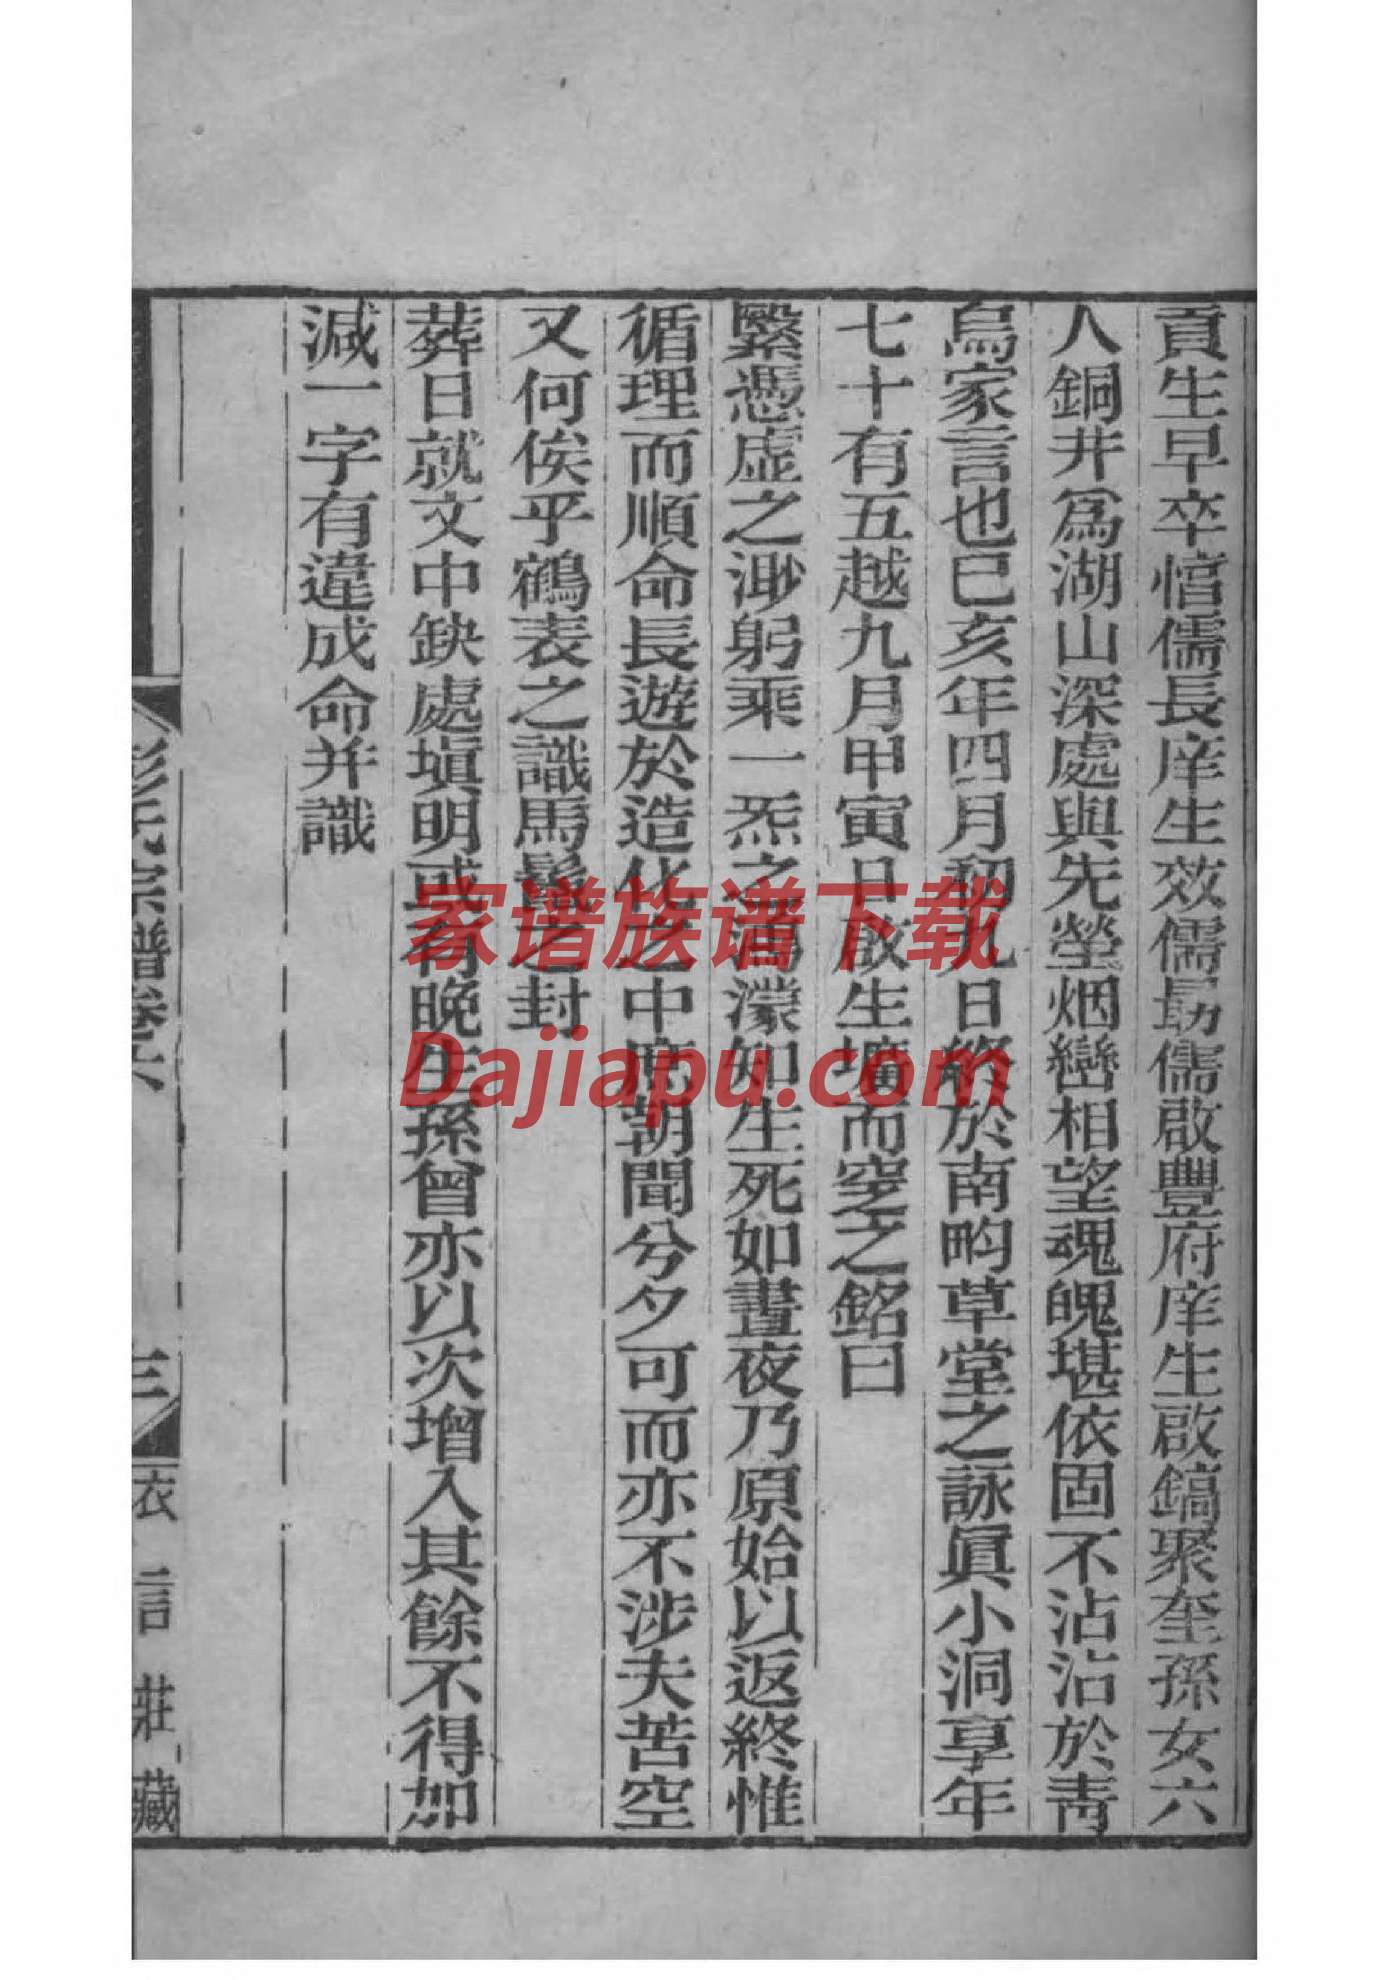 貢生早卒愔儒長庠生效儒勗儒啟豐府庠生啟鎬聚奎孫女六
人銅井爲湖山深處與先塋烟巒相望魂魄堪依固不沾沾於靑
烏家言也已亥年四月初九日終於南畇草堂之詠眞小洞享年
七十有五越九月甲寅日啟生壙而窆之銘曰
繄憑虛之渺躬乘一炁之澒濛知生死如晝夜乃原始以返終惟
循理而順命長遊於造化之中庶朝聞兮夕可而亦不涉夫苦空
又何俟乎鶴表之識馬鬣之封
葬日就文中缺處塡明或有晚生孫曾亦以次增入其餘不得加
減一字有違成命并識
彭氏宗譜卷六
三
衣言莊藏
家谱族谱下载
Dajiapu.com